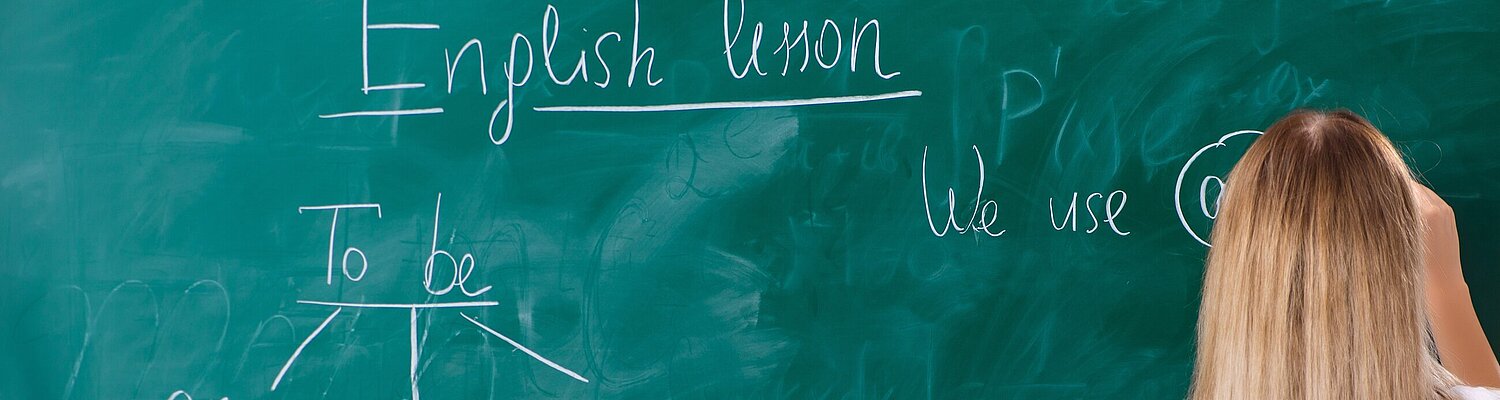 English lesson
We use
To be